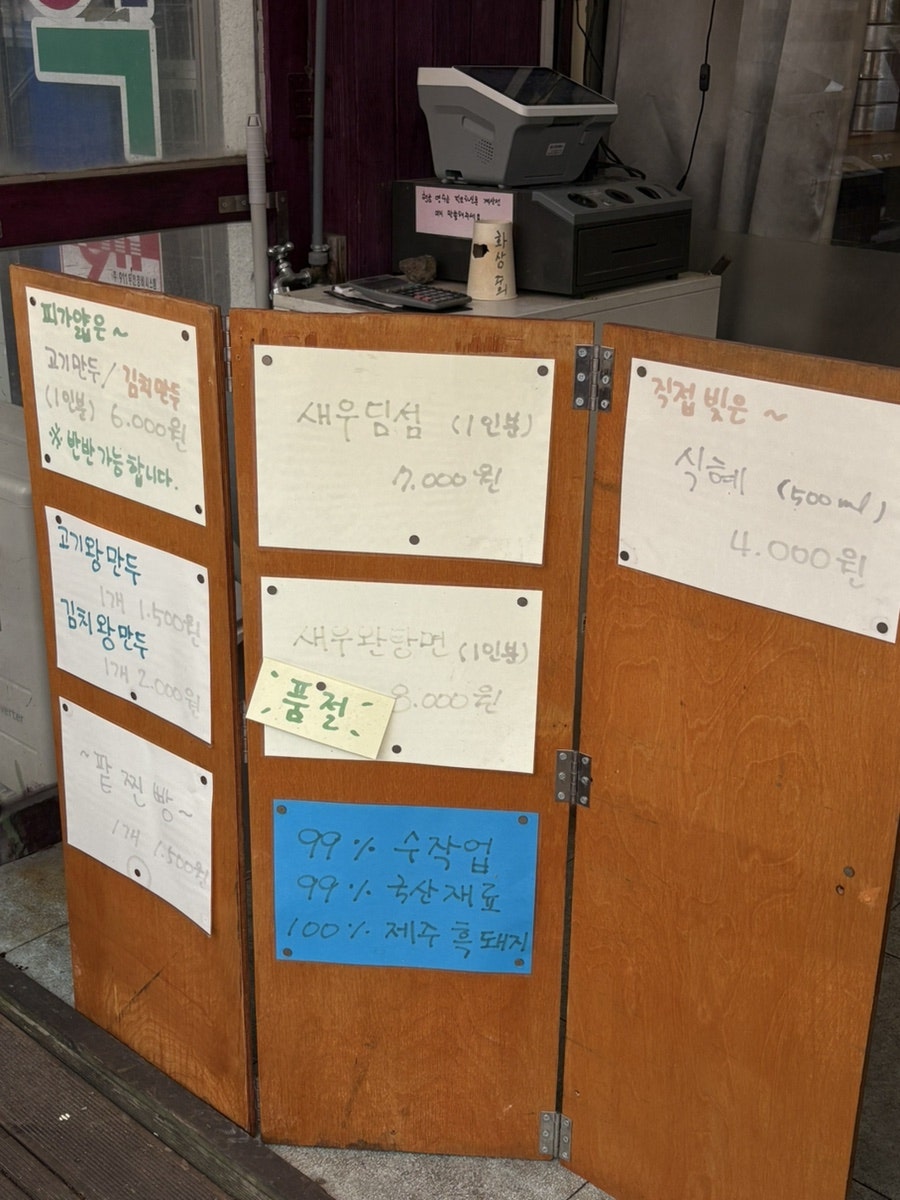 피가얇은~
고기만두/김치만두
(1인분) 6.000원
※반반가능합니다.
고기왕만두
1개 1.500원
김치왕만두
1개 2.000원
~팥찐빵~
1개 1.500원
새우딤섬 (1인분)
7.000원
새우완탕면(1인분)
8.000원
품절
99% 수작업
99% 국산재료
100% 제주흑돼지
직접빚은~
식혜 (500ml)
4.000원
화상주의